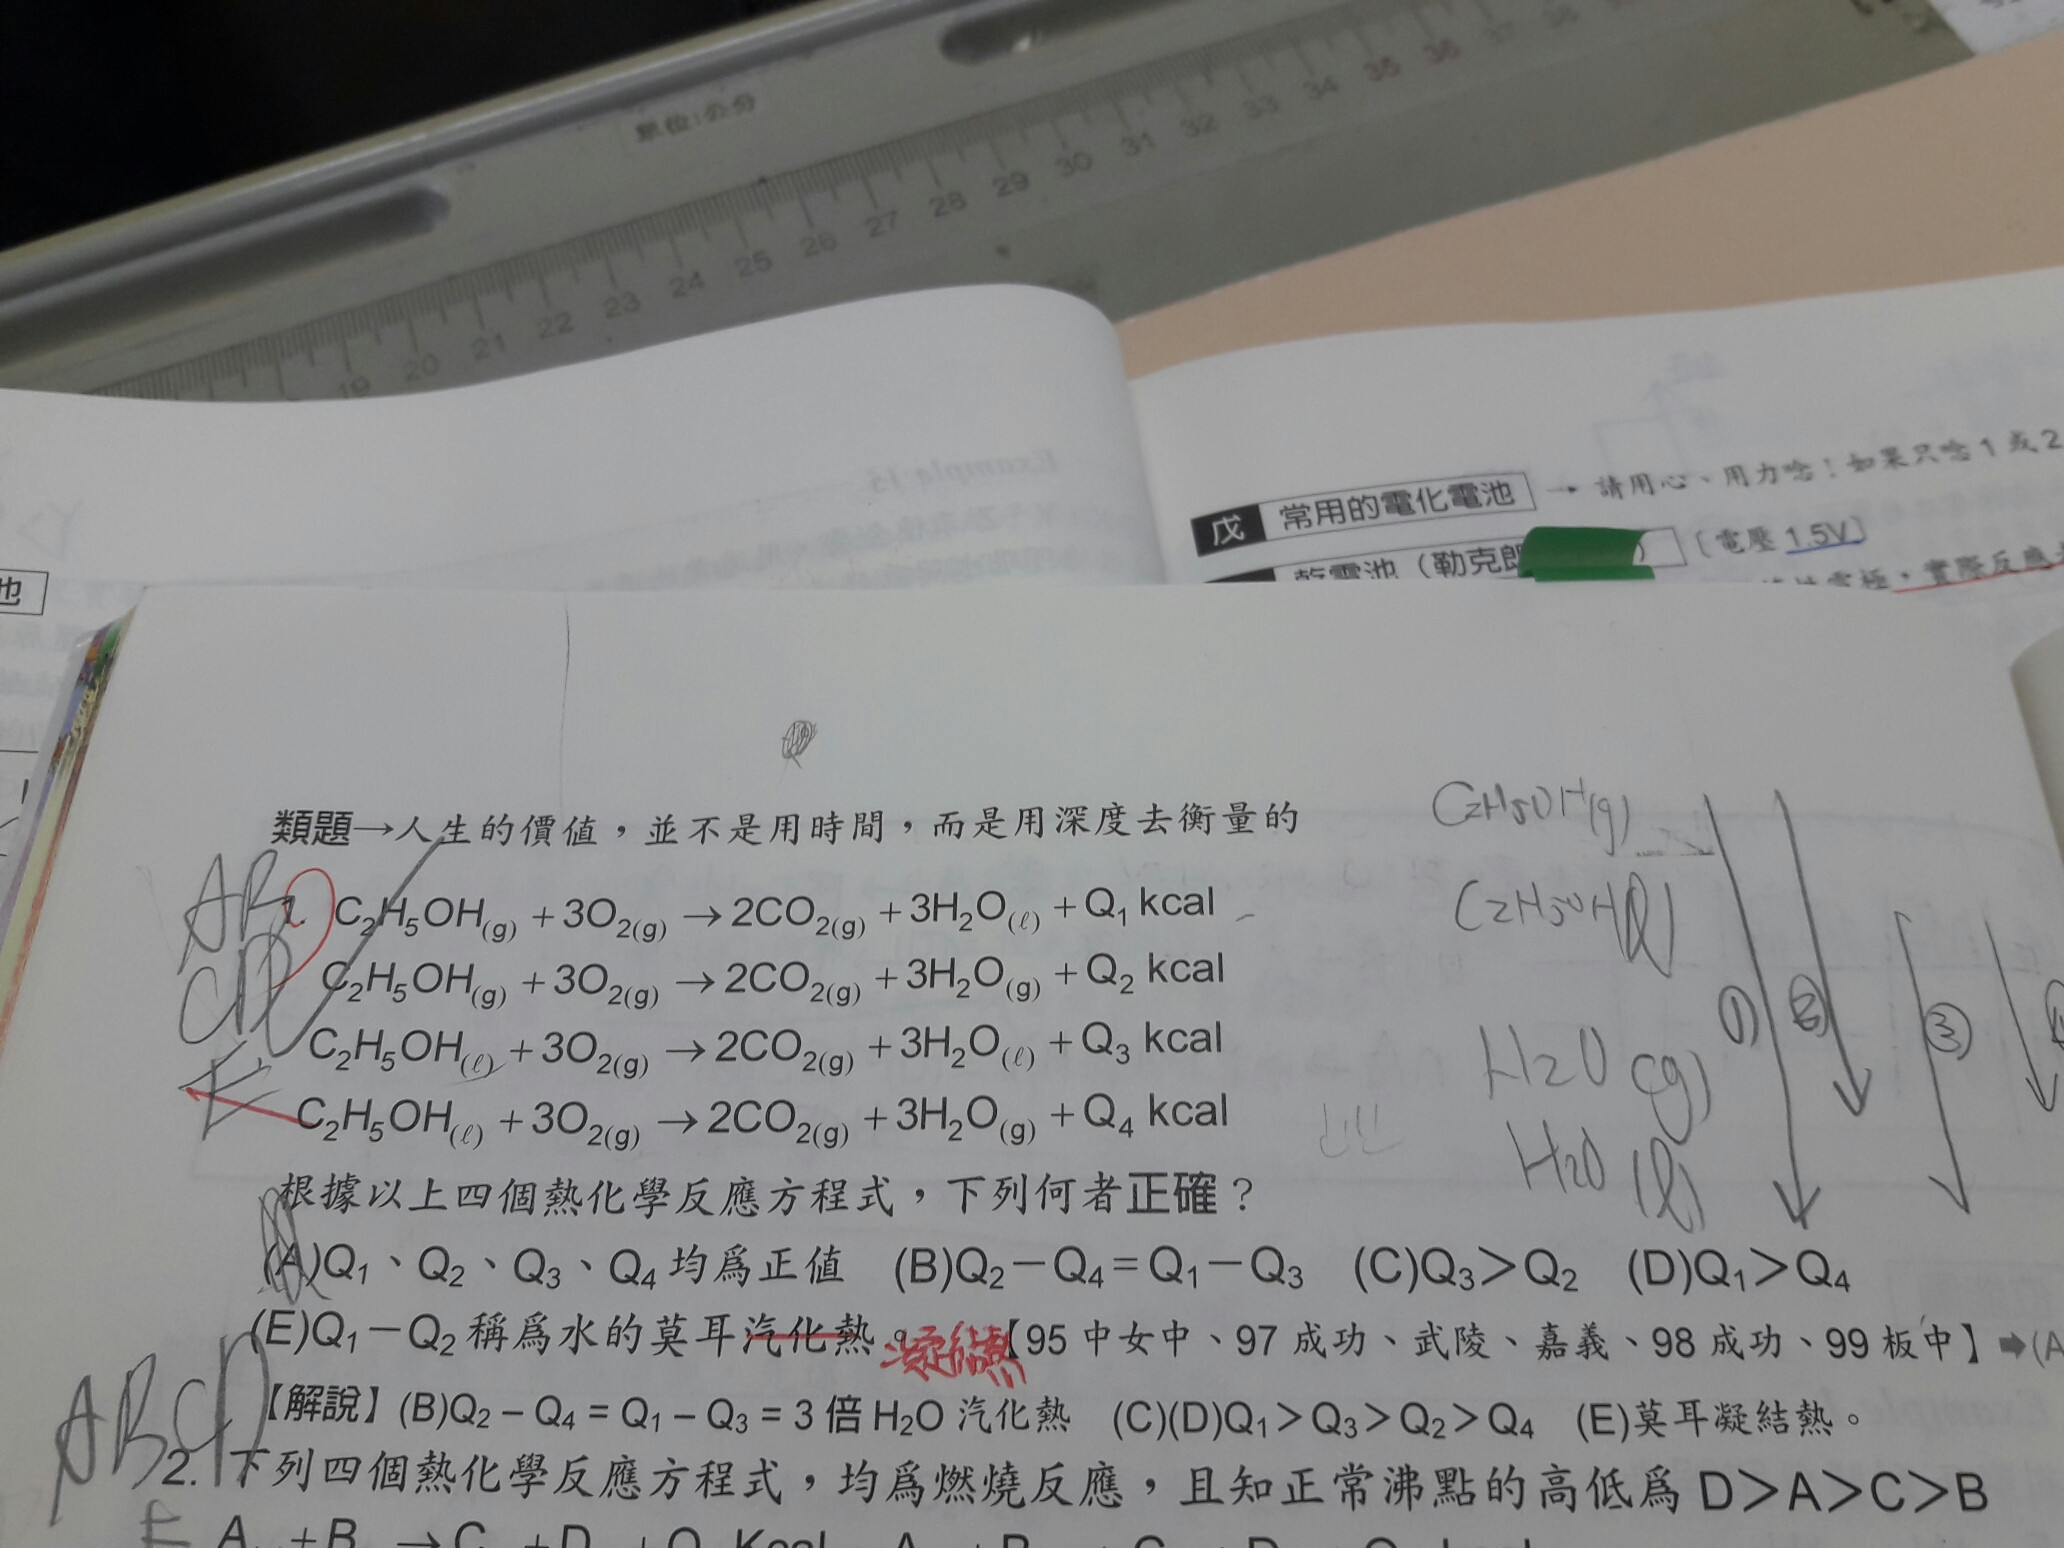 單位:公分
19 20 21 22 23 24 25 26 27 28 29 30 31 32 33 34 35 36 37 38
Example 15
戊 常用的電化電池 → 請用心、用力唸！如果只唸1或2
乾電池（勒克郎 ）〔電壓 1.5V〕
電極，實際反應
也
類題→人生的價值，並不是用時間，而是用深度去衡量的
C₂H₅OH(g) + 3O₂(g) → 2CO₂(g) + 3H₂O(ℓ) + Q₁ kcal
C₂H₅OH(g) + 3O₂(g) → 2CO₂(g) + 3H₂O(g) + Q₂ kcal
C₂H₅OH(ℓ) + 3O₂(g) → 2CO₂(g) + 3H₂O(ℓ) + Q₃ kcal
C₂H₅OH(ℓ) + 3O₂(g) → 2CO₂(g) + 3H₂O(g) + Q₄ kcal
AB
CD
E
C2H5OH(g)
C2H5OH(l)
H2O (g)
H2O (l)
① ② ③
根據以上四個熱化學反應方程式，下列何者正確？
(A)Q₁、Q₂、Q₃、Q₄均爲正值 (B)Q₂－Q₄＝Q₁－Q₃ (C)Q₃＞Q₂ (D)Q₁＞Q₄
(E)Q₁－Q₂稱爲水的莫耳汽化熱。凝結熱【95中女中、97成功、武陵、嘉義、98成功、99板中】➡(A
【解說】(B)Q₂－Q₄＝Q₁－Q₃＝3倍H₂O汽化熱 (C)(D)Q₁＞Q₃＞Q₂＞Q₄ (E)莫耳凝結熱。
ABCD
2. 下列四個熱化學反應方程式，均爲燃燒反應，且知正常沸點的高低爲D＞A＞C＞B
E